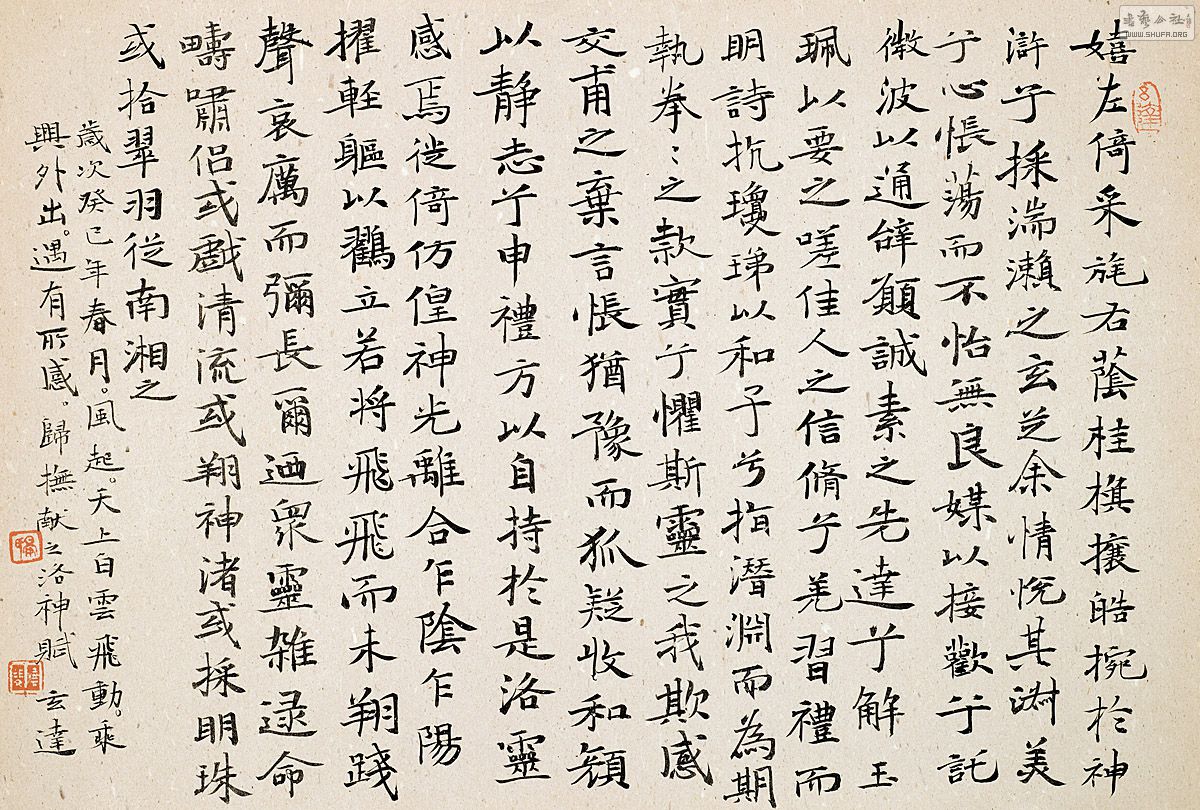 嬉左倚采旄右蔭桂旗攘皓捥於神
滸兮採湍瀨之玄芝余情悅其淑美
兮心悵蕩而不怡無良媒以接歡兮託
微波以通辭願誠素之先達兮解玉
珮以要之嗟佳人之信脩兮羌習禮而
明詩抗瓊珶以和予兮指潛淵而為期
執拳〻之款實兮懼斯靈之我欺感
交甫之棄言悵猶豫而狐疑收和顏
以靜志兮申禮方以自持於是洛靈
感焉徙倚仿偟神光離合乍陰乍陽
擢輕軀以鸖立若將飛飛而未翔踐
聲哀厲而彌長爾迺衆靈雜遝命
疇嘯侶或戲清流或翔神渚或採明珠
或拾翠羽從南湘之
歲次癸巳年春月。風起。天上白雲飛動。乘
興外出。遇有所感。歸撫献之洛神賦 玄達
书艺公社
WWW.SHUFA.ORG